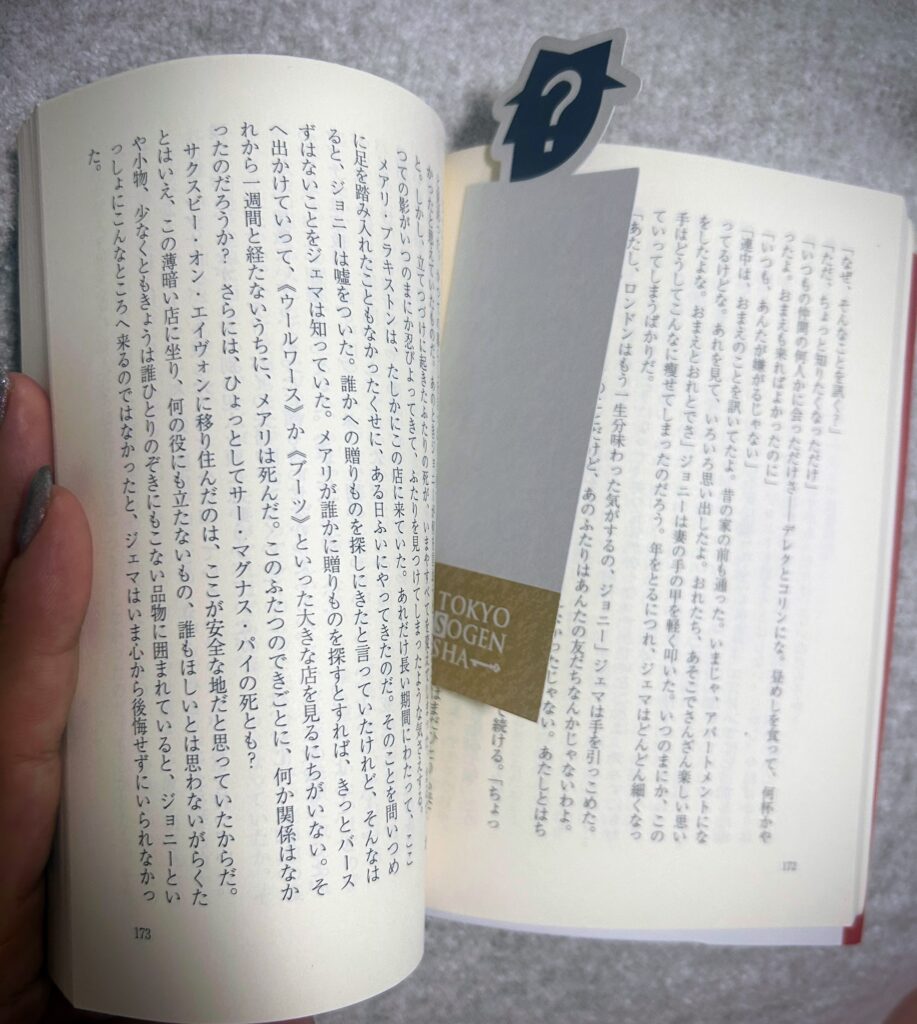 「なぜ、そんなことを訊く？」
「ただ、ちょっと知りたくなっただけ」
「いつもの仲間の何人かに会っただけさ——デレクとコリンにな。昼めしを食って、何杯かや
ったよ。おまえも来ればよかったのに」
「いつも、あんたが嫌がるじゃない」
「連中は、おまえのことを訊いてたよ。昔の家の前も通った。いまじゃ、アパートメントにな
ってるけどな。あれを見て、いろいろ思い出したよ。おれたち、あそこでさんざん楽しい思い
をしたよな。おまえとおれとでさ」ジョニーは妻の手の甲を軽く叩いた。いつのまにか、この
手はどうしてこんなに痩せてしまったのだろう。年をとるにつれ、ジェマはどんどん細くなっ
ていってしまうばかりだ。
「あたし、ロンドンはもう一生分味わった気がするの、ジョニー」ジェマは手を引っこめた。
だけど、あのふたりはあんたの友だちなんかじゃないわよ。
かったじゃない。あたしとはち
て続ける。「ちょっ
172
?
TOKYO
SOGEN
SHA
と。しかし、立てつづけに起きたふたりの死が、いまやすべてを
つての影がいつのまにか忍びよってきて、ふたりを見つけてしまったような気さえする。
メアリ・ブラキストンは、たしかにこの店に来ていた。あれだけ長い期間にわたって、ここ
に足を踏み入れたこともなかったくせに、ある日ふいにやってきたのだ。そのことを問いつめ
ると、ジョニーは嘘をついた。誰かへの贈りものを探しにきたと言っていたけれど、そんなは
ずはないことをジェマは知っていた。メアリが誰かに贈りものを探すとすれば、きっとバース
へ出かけていって、《ウールワース》か《ブーツ》といった大きな店を見るにちがいない。そ
れから一週間と経たないうちに、メアリは死んだ。このふたつのできごとに、何か関係はなか
ったのだろうか？　さらには、ひょっとしてサー・マグナス・パイの死とも？
サクスビー・オン・エイヴォンに移り住んだのは、ここが安全な地だと思っていたからだ。
とはいえ、この薄暗い店に坐り、何の役にも立たないもの、誰もほしいとは思わないがらくた
や小物、少なくともきょうは誰ひとりのぞきにもこない品物に囲まれていると、ジョニーとい
っしょにこんなところへ来るのではなかったと、ジェマはいま心から後悔せずにいられなかっ
た。
173